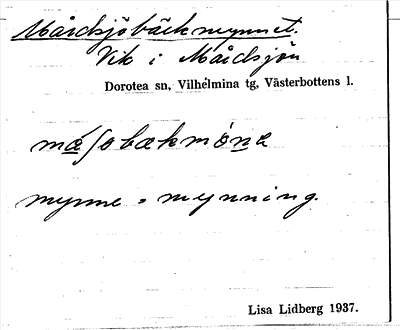 Måidsjöbäckmynnet.
Vik i Måidsjön
Dorotea sn, Vilhelmina tg, Västerbottens l.
mynne = mynning.
Lisa Lidberg 1937.